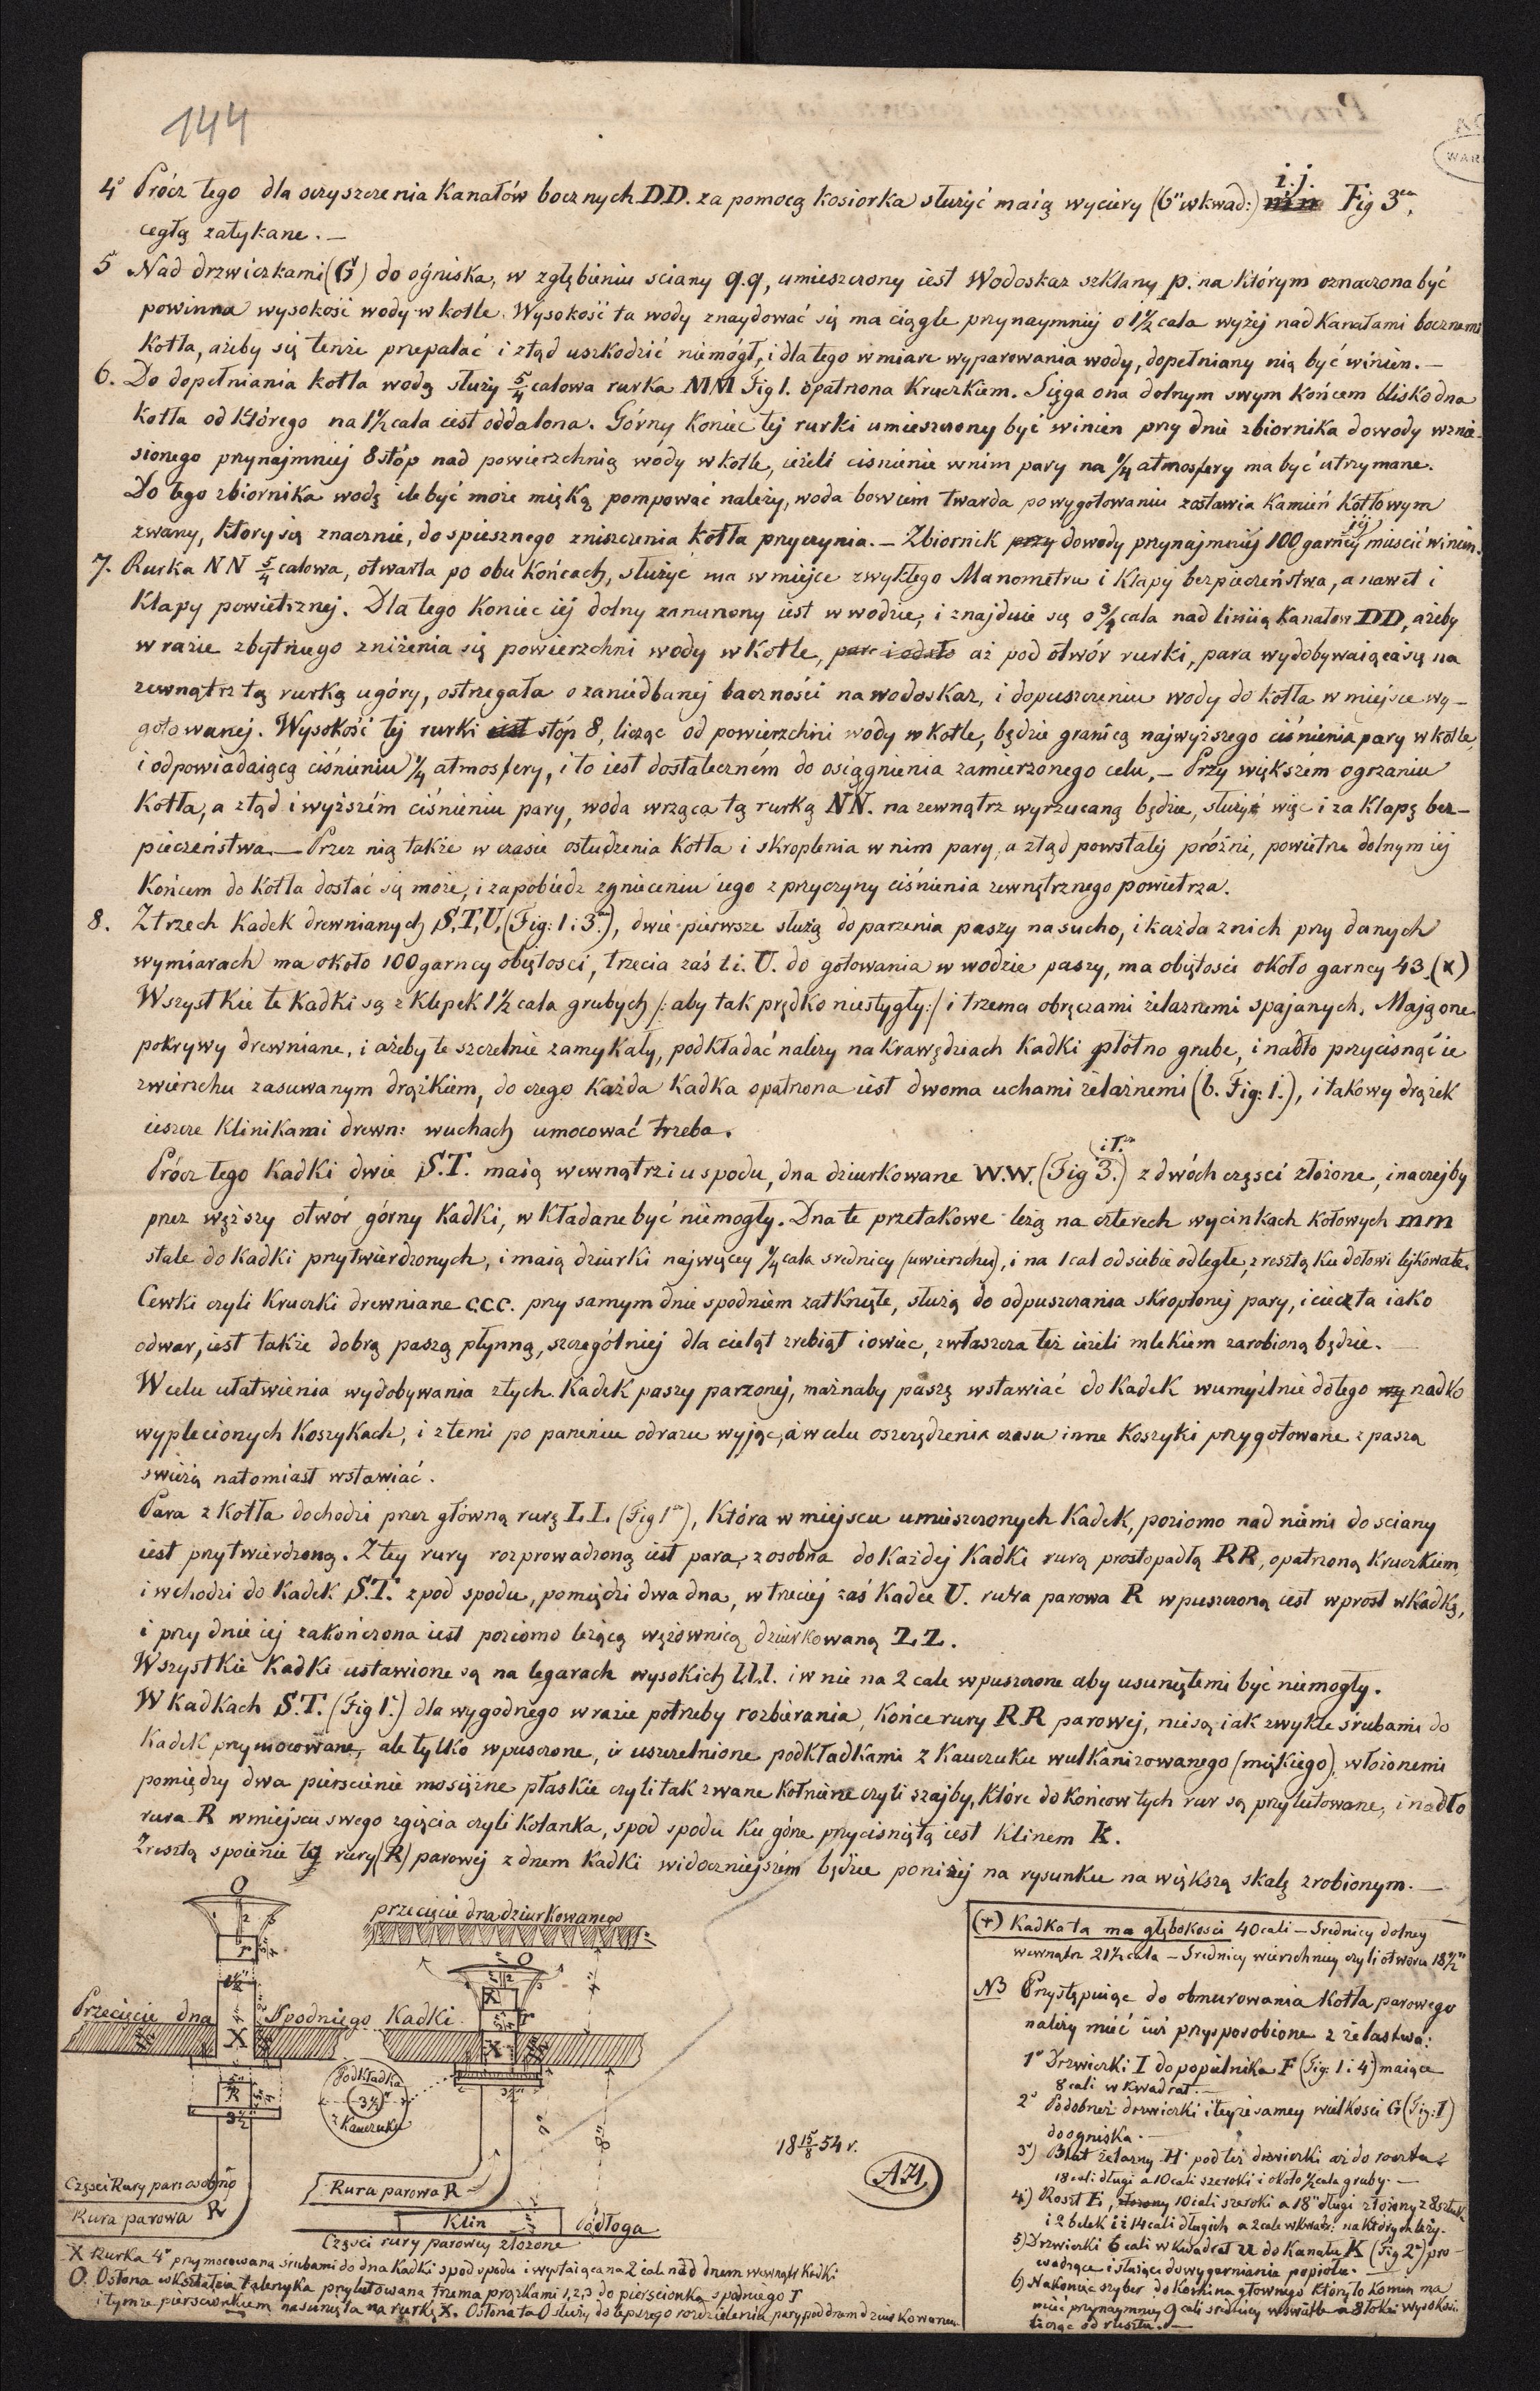 144
4° Prócz tego dla oczyszczenia Kanałów bocznych DD. za pomocą kosiorka służyć maią wyciery (6" w kwad:) i.j. Fig 3cia,
cegłą zatykane. —
5 Nad drzwiczkami (G) do ogniska, w zgłębieniu sciany q.q, umieszczony iest Wodoskaz szklany p. na którym oznaczona być
powinna wysokość wody w kotle. Wysokość ta wody znaydować się ma ciągle przynaymniéj o 1½ cala wyżéj nad Kanałami bocznemi
Kotła, ażeby się tenże przepalać i ztąd uszkodzić niemógł, i dla tego w miarę wyparowania wody, dopełniany nią być winien. —
6. Do dopełniania kotła wodą służy 5/4 calowa rurka MM Fig 1. opatrzona Kruczkiem. Sięga ona dolnym swym końcem blisko dna
kotła od którego na 1½ cala iest oddalona. Górny Koniec téj rurki umieszczony być winien przy dnie zbiornika do wody wznie-
sionego przynajmniéj 8 stóp nad powierzchnią wody w kotle, ieżeli cisnienie w nim pary na ¼ atmosfery ma być utrzymane.
Do tego zbiornika wodę ile być może miękką pompować należy, woda bowiem twarda po wygotowaniu zostawia Kamień Kotłowym
zwany, który się znacznie, do spiesznego zniszczenia kotła przyczynia. — Zbiornik przy do wody przynajmniéj 100 garncy iéj mieścić winien.
7. Rurka NN 5/4 calowa, otwarta po obu Końcach, służyć ma w miejsce zwykłego Manometru i Klapy bezpieczeństwa, a nawet i
Klapy powietrznej. Dla tego Koniec iéj dolny zanurzony iest w wodzie, i znajduie się o ¾ cala nad liniią Kanałów DD, ażeby
w razie zbytniego zniżenia się powierzchni wody w Kotle, aż pod otwór rurki, para wydobywaiąca się na
zewnątrz tą rurką u góry, ostrzegała o zaniedbanej baczności na wodoskaz, i dopuszczeniu wody do kotła w miejsce wy-
gotowanej. Wysokość téj rurki iest stóp 8, licząc od powierzchni wody w Kotle, będzie granicą najwyższego ciśnienia pary w kotle,
i odpowiadaiącą ciśnieniu ¼ atmosfery, i to iest dostateczném do osiągnienia zamierzonego celu. — Przy większém ogrzaniu
Kotła, a ztąd i wyższém ciśnieniu pary, woda wrząca tą rurką NN. na zewnątrz wyrzucaną będzie, służy więc i za Klapę bez-
pieczeństwa. — Przez nią także w czasie ostudzenia Kotła i skroplenia w nim pary, a ztąd powstałéj próżni, powietrze dolnym iéj
Końcem do Kotła dostać się może, i zapobiedz zgnieceniu iego z przyczyny ciśnienia zewnętrznego powietrza.
8. Z trzech Kadek drewnianych S,T,U, (Fig: 1 i 3.), dwie pierwsze służą do parzenia paszy na sucho, i każda z nich przy danych
wymiarach ma około 100 garncy obiętosci, trzecia zaś t.i. U. do gotowania w wodzie paszy, ma obiętości około garncy 43. (x)
Wszystkie te Kadki są z Klepek 1½ cala grubych /: aby tak prędko niestygły :/ i trzema obręczami żelaznemi spajanych. Mają one
pokrywy drewniane, i ażeby te szczelnie zamykały, podkładać należy na Krawędziach Kadki płótno grube, i nadto przycisnąć ie
zwierzchu zasuwanym drążkiem, do czego Każda Kadka opatrzona iest dwoma uchami żelaznemi (b. Fig: 1.), i takowy drążek
ieszcze Klinikami drewn: w uchach umocować trzeba.
Prócz tego Kadki dwie S.T. maią wewnątrz i u spodu, dna dziurkowane W.W. (Fig 3. i 1.) z dwóch części złożone, inaczejby
przez węższy otwór górny Kadki, wkładane być niemogły. Dna te przetakowe leżą na czterech wycinkach Kołowych mm
stale do Kadki przytwierdzonych, i maią dziurki najwięcey ¼ cala srednicy (u wierzchu), i na 1 cal od siebie odległe, zresztą ku dołowi lejkowate.
Cewki czyli Kruczki drewniane c.c.c. przy samym dnie spodniem zatknięte, służą do odpuszczania skroplonej pary, i ciecz ta iako
odwar, iest także dobrą paszą płynną, szczególniej dla cieląt źrebiąt i owiec, zwłaszcza też ieżeli mlekiem zarobioną będzie. —
W celu ułatwienia wydobywania z tych Kadek paszy parzonéj, możnaby paszę wstawiać do Kadek w umyślnie do tego rzadko
wyplecionych Koszykach, i z temi po parzeniu od razu wyjąć, a w celu oszczędzenia czasu inne Koszyki przygotowane z paszą
świeżą natomiast wstawiać.
Para z Kotła dochodzi przez główną rurę LL (Fig 1sza), Która w miejscu umieszczonych Kadek, poziomo nad niemi do sciany
iest przytwierdzoną. Z tey rury rozprowadzoną iest para, z osobna do Każdej Kadki rurą prostopadłą RR, opatrzoną Kruczkiem,
i wchodzi do Kadek S.T. z pod spodu, pomiędzi dwa dna, w trzeciéj zaś Kadce U. rura parowa R wpuszczoną iest wprost w Kadkę,
i przy dnie iéj zakończona iest poziomo leżącą wężownicą dziurkowaną ZZ.
Wszystkie Kadki ustawione są na legarach wysokich l.l.l. i w nie na 2 cale wpuszczone aby usuniętemi być niemogły.
W Kadkach S.T. (Fig 1.) dla wygodnego w razie potrzeby rozbierania, Końce rury RR parowej, nie są iak zwykle śrubami do
Kadek przymocowane, ale tylko wpuszczone, i uszczelnione podkładkami z Kauczuku wulkanizowanego (miękkiego), włożonemi
pomiędzy dwa pierscienie mosiężne płaskie czyli tak zwane Kołnierze czyli szajby, Które do Końców tych rur są przylutowane, i nadto
rura R w miejscu swego zgięcia czyli Kolanka, spod spodu ku górze przyciśniętą iest Klinem K.
Zresztą spoienie téj rury (R) parowéj z dnem Kadki widoczniejszém będzie poniżéj na rysunku na większą skalę zrobionym. —
O
przecięcie dna dziurkowanego
O
Przecięcie dna Spodniego Kadki
X
X
R
3½"
Podkładka
3½"
z Kauczuku
Części Rury par: osobno
Rura parowa R
Rura parowa R
Klin
Podłoga
Części rury parowey złożone
X Rurka 4" przymocowana śrubami do dna Kadki spod spodu i wystaiąca na 2 cale nad dnem wewnątrz Kadki
O. Osłona w kształcie talerzyka przylutowana trzema prążkami 1,2,3 do pierscionka spodniego T
i tymże pierscionkiem nasunięta na rurkę X. Osłona ta O służy do lepszego rozdzielenia pary pod dnem dziurkowanem
18 15/8 54 r.
AH.
(x) Kadka ta ma głębokości 40 cali — Srednicy dolney
wewnątrz 21½ cala — Srednicy wierzchniey czyli otworu 18½"
NB Przystępuiąc do obmurowania Kotła parowego
należy mieć iuż przysposobione z żelastwa:
1° Drzwiczki I do popielnika F (Fig. 1 i 4) maiące
8 cali w Kwadrat. —
2° Podobneż drzwiczki i teyże samey wielkości G (Fig: 1)
do ogniska. —
3°) Blat żelazny H pod też drzwiczki aż do rosztu,
18 cali długi a 10 cali szeroki i około ½ cala gruby. —
4) Roszt E, złożony 10 cali szeroki a 18" długi złożony z 8 sztuk
i 2 belek i 14 cali długich a 2 cale w kwadr: na których leży.
5) Drzwiczki 6 cali w Kwadrat u do Kanału K (Fig 2) pro-
wadzące i służące do wygarniania popiołu. —
6) Nakoniec szyber do Komina głownego Który to Komin ma
mieć przynaymniey 9 cali srednicy w swietle a 8 łokci wysokości
licząc od rusztu. —